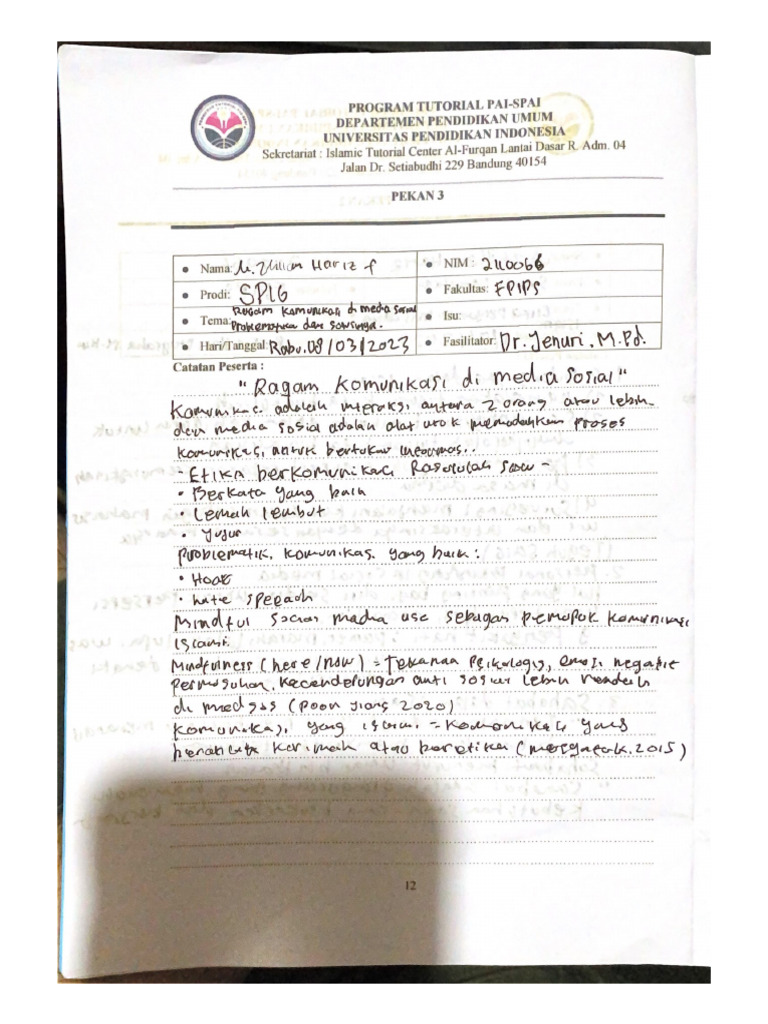 PROGRAM TUTORIAL PAI-SPAI
DEPARTEMEN PENDIDIKAN UMUM
UNIVERSITAS PENDIDIKAN INDONESIA
Sekretariat : Islamic Tutorial Center Al-Furqan Lantai Dasar R. Adm. 04
Jalan Dr. Setiabudhi 229 Bandung 40154
PEKAN 3
• Nama: M. Zhilian Hariz f
• NIM : 2110066
• Prodi: SPIG
• Fakultas: FPIPS
• Tema: Ragam Komunikasi di media sosial
Problematika dan Solusinya.
• Isu:
• Hari/Tanggal: Rabu. 08/03/2023
• Fasilitator: Dr. Jenuri. M.Pd.
Catatan Peserta :
"Ragam Komunikasi di media Sosial"
Komunikasi adalah interaksi antara 2 orang atau lebih
dan media sosial adalah alat utk memudahkan proses
komunikasi, untuk bertukar informasi..
- Etika berkomunikasi Rasulullah Saw -
• Berkata yang baik
• Lemah lembut
• Jujur
Problematik, komunikasi yang baik :
• Hoax
• hate speeach
Mindful social media use sebagai pemupuk komunikasi
islami
Mindfulness (here/now) = Tekanan Psikologis, emosi negatif
Permusuhan, Kecenderungan anti sosial lebih rendah
di medsos (Poon Jiang 2020)
Komunikasi yang islami = Komunikasi yang
berakhlak karimah atau beretika ( 2015)
12